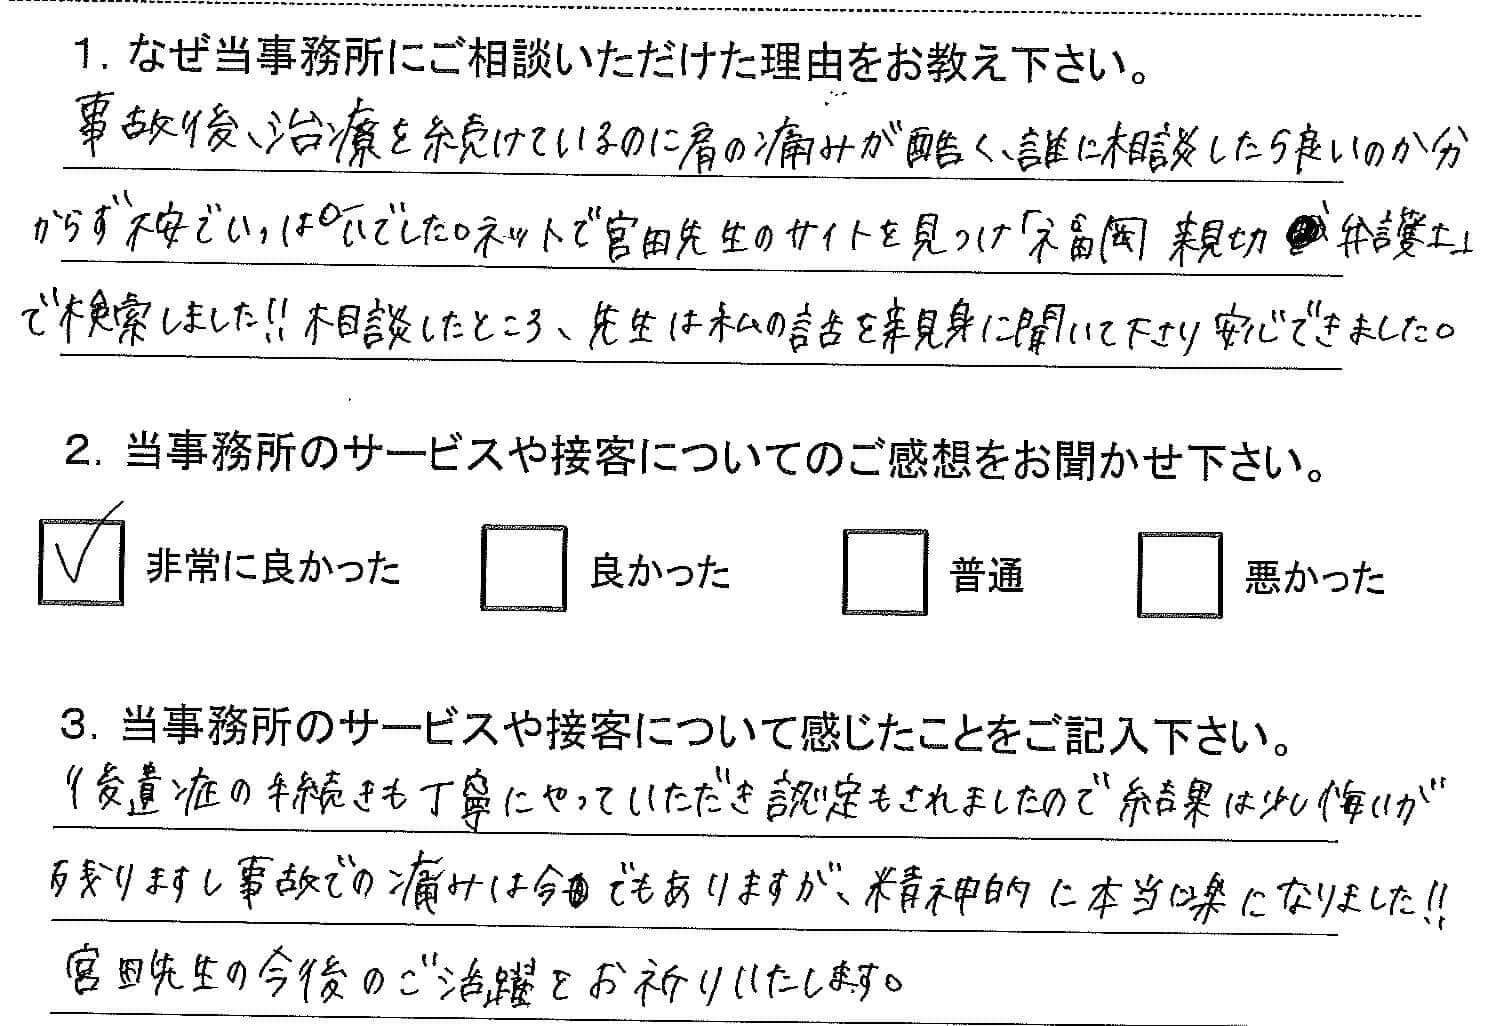 1. なぜ当事務所にご相談いただけた理由をお教え下さい。
事故後、治療を続けているのに肩の痛みが酷く、誰に相談したら良いのか分
からず不安でいっぱいでした。ネットで宮田先生のサイトを見つけ「福岡 親切 弁護士」
で検索しました!! 相談したところ、先生は私の話を親身に聞いて下さり安心できました。
2. 当事務所のサービスや接客についてのご感想をお聞かせ下さい。
非常に良かった 良かった 普通 悪かった
3. 当事務所のサービスや接客について感じたことをご記入下さい。
後遺症の手続きも丁寧にやっていただき認定もされましたので結果は少し悔いが
残りますし事故での痛みは今でもありますが、精神的に本当に楽になりました!!
宮田先生の今後のご活躍をお祈りいたします。